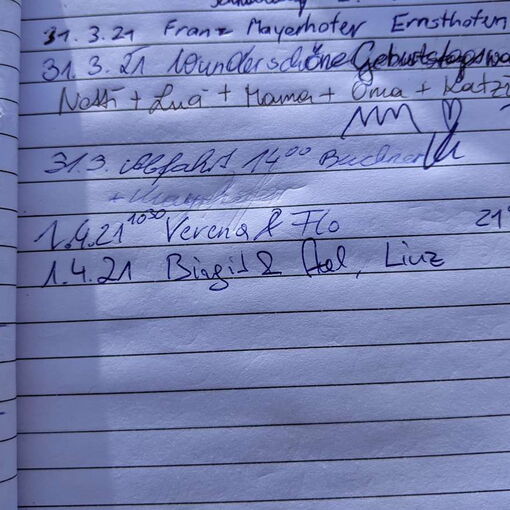 31.3.21 Franz Mayerhofer Ernsthofen
31.3.21 Wunderschöne Geburtstagswa
Netti + Luca + Mama + Oma + Katzi
31.3. Abfahrt 14⁰⁰
1.4.21 10³⁰ Verena & Flo 21
1.4.21 Birgit & Axel, Linz